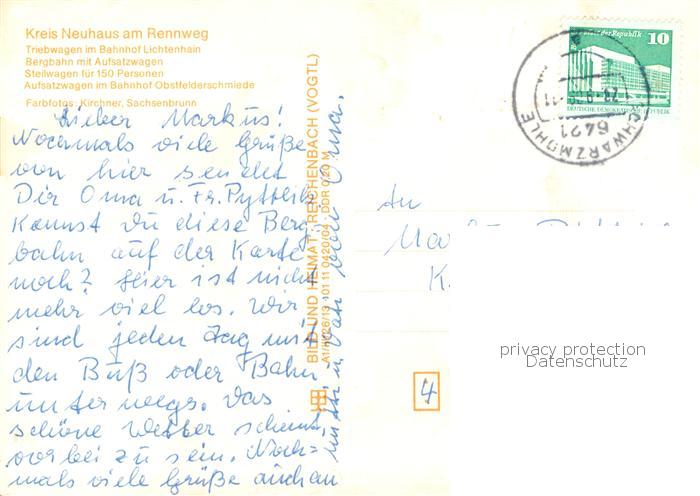 Kreis Neuhaus am Rennweg
Triebwagen im Bahnhof Lichtenhain
Bergbahn mit Aufsatzwagen
Steilwagen für 150 Personen
Aufsatzwagen im Bahnhof Obstfelderschmiede
Farbfotos: Kirchner, Sachsenbrunn
Lieber Markus!
Nochmals viele Grüße
von hier sendet
Dir Oma u. Fr. Pyttlik
Kannst Du diese Berg-
bahn auf der Karte
noch? Hier ist nicht
mehr viel los. Wir
sind jeden Tag mit
den Buß oder Bahn
unterwegs. Das
schöne Wetter scheint
vorbei zu sein. Noch=
mals viele Grüße auch an
Mutti u. Vati von Oma.
BILD UND HEIMAT REICHENBACH (VOGTL)
DDR 0,20 M
10
DEUTSCHE DEMOKRATISCHE REPUBLIK
6421
SCHWARZMÜHLE
An
4
privacy protection
Datenschutz